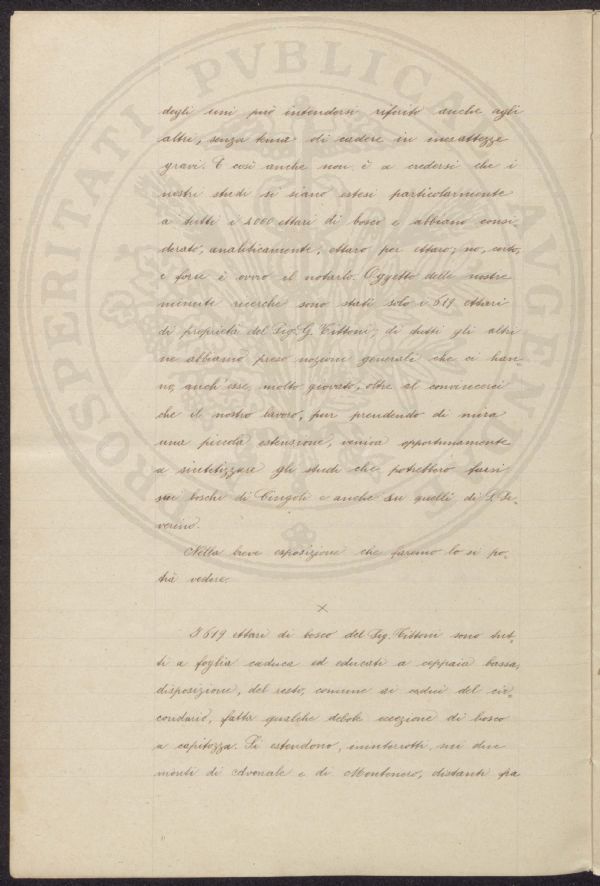 PROSPERITATI PVBLICAE AVGENDAE
degli uni può intendersi riferito anche agli
altri, senza tema di cadere in inesattezze
gravi. E così anche non è a credersi che i
nostri studi si siano estesi particolarmente
a tutti i 4000 ettari di bosco e abbiano consi-
derato, analiticamente, ettaro per ettaro; no, certo,
e forse è ovvio il notarlo. Oggetto delle nostre
minute ricerche sono stati solo i 619 ettari
di proprietà del Sig. G. Tittoni; di tutti gli altri
ne abbiamo preso nozioni generali che ci han-
no, anch'esse, molto giovato, oltre al convincerci
che il nostro lavoro, pur prendendo di mira
una piccola estensione, veniva opportunamente
a sintetizzare gli studi che potrebbero farsi
sui boschi di Cingoli e anche su quelli di S. Se-
verino.
Nella breve esposizione che faremo lo si po-
trà vedere.
×
I 619 ettari di bosco del Sig. Tittoni sono tut-
ti a foglia caduca ed educati a ceppaia bassa,
disposizione, del resto, comune ai cedui del cir-
condario, fatta qualche debole eccezione di bosco
a capitozza. Si estendono, ininterrotti, sui due
monti di Avenale e di Montenero, distanti fra